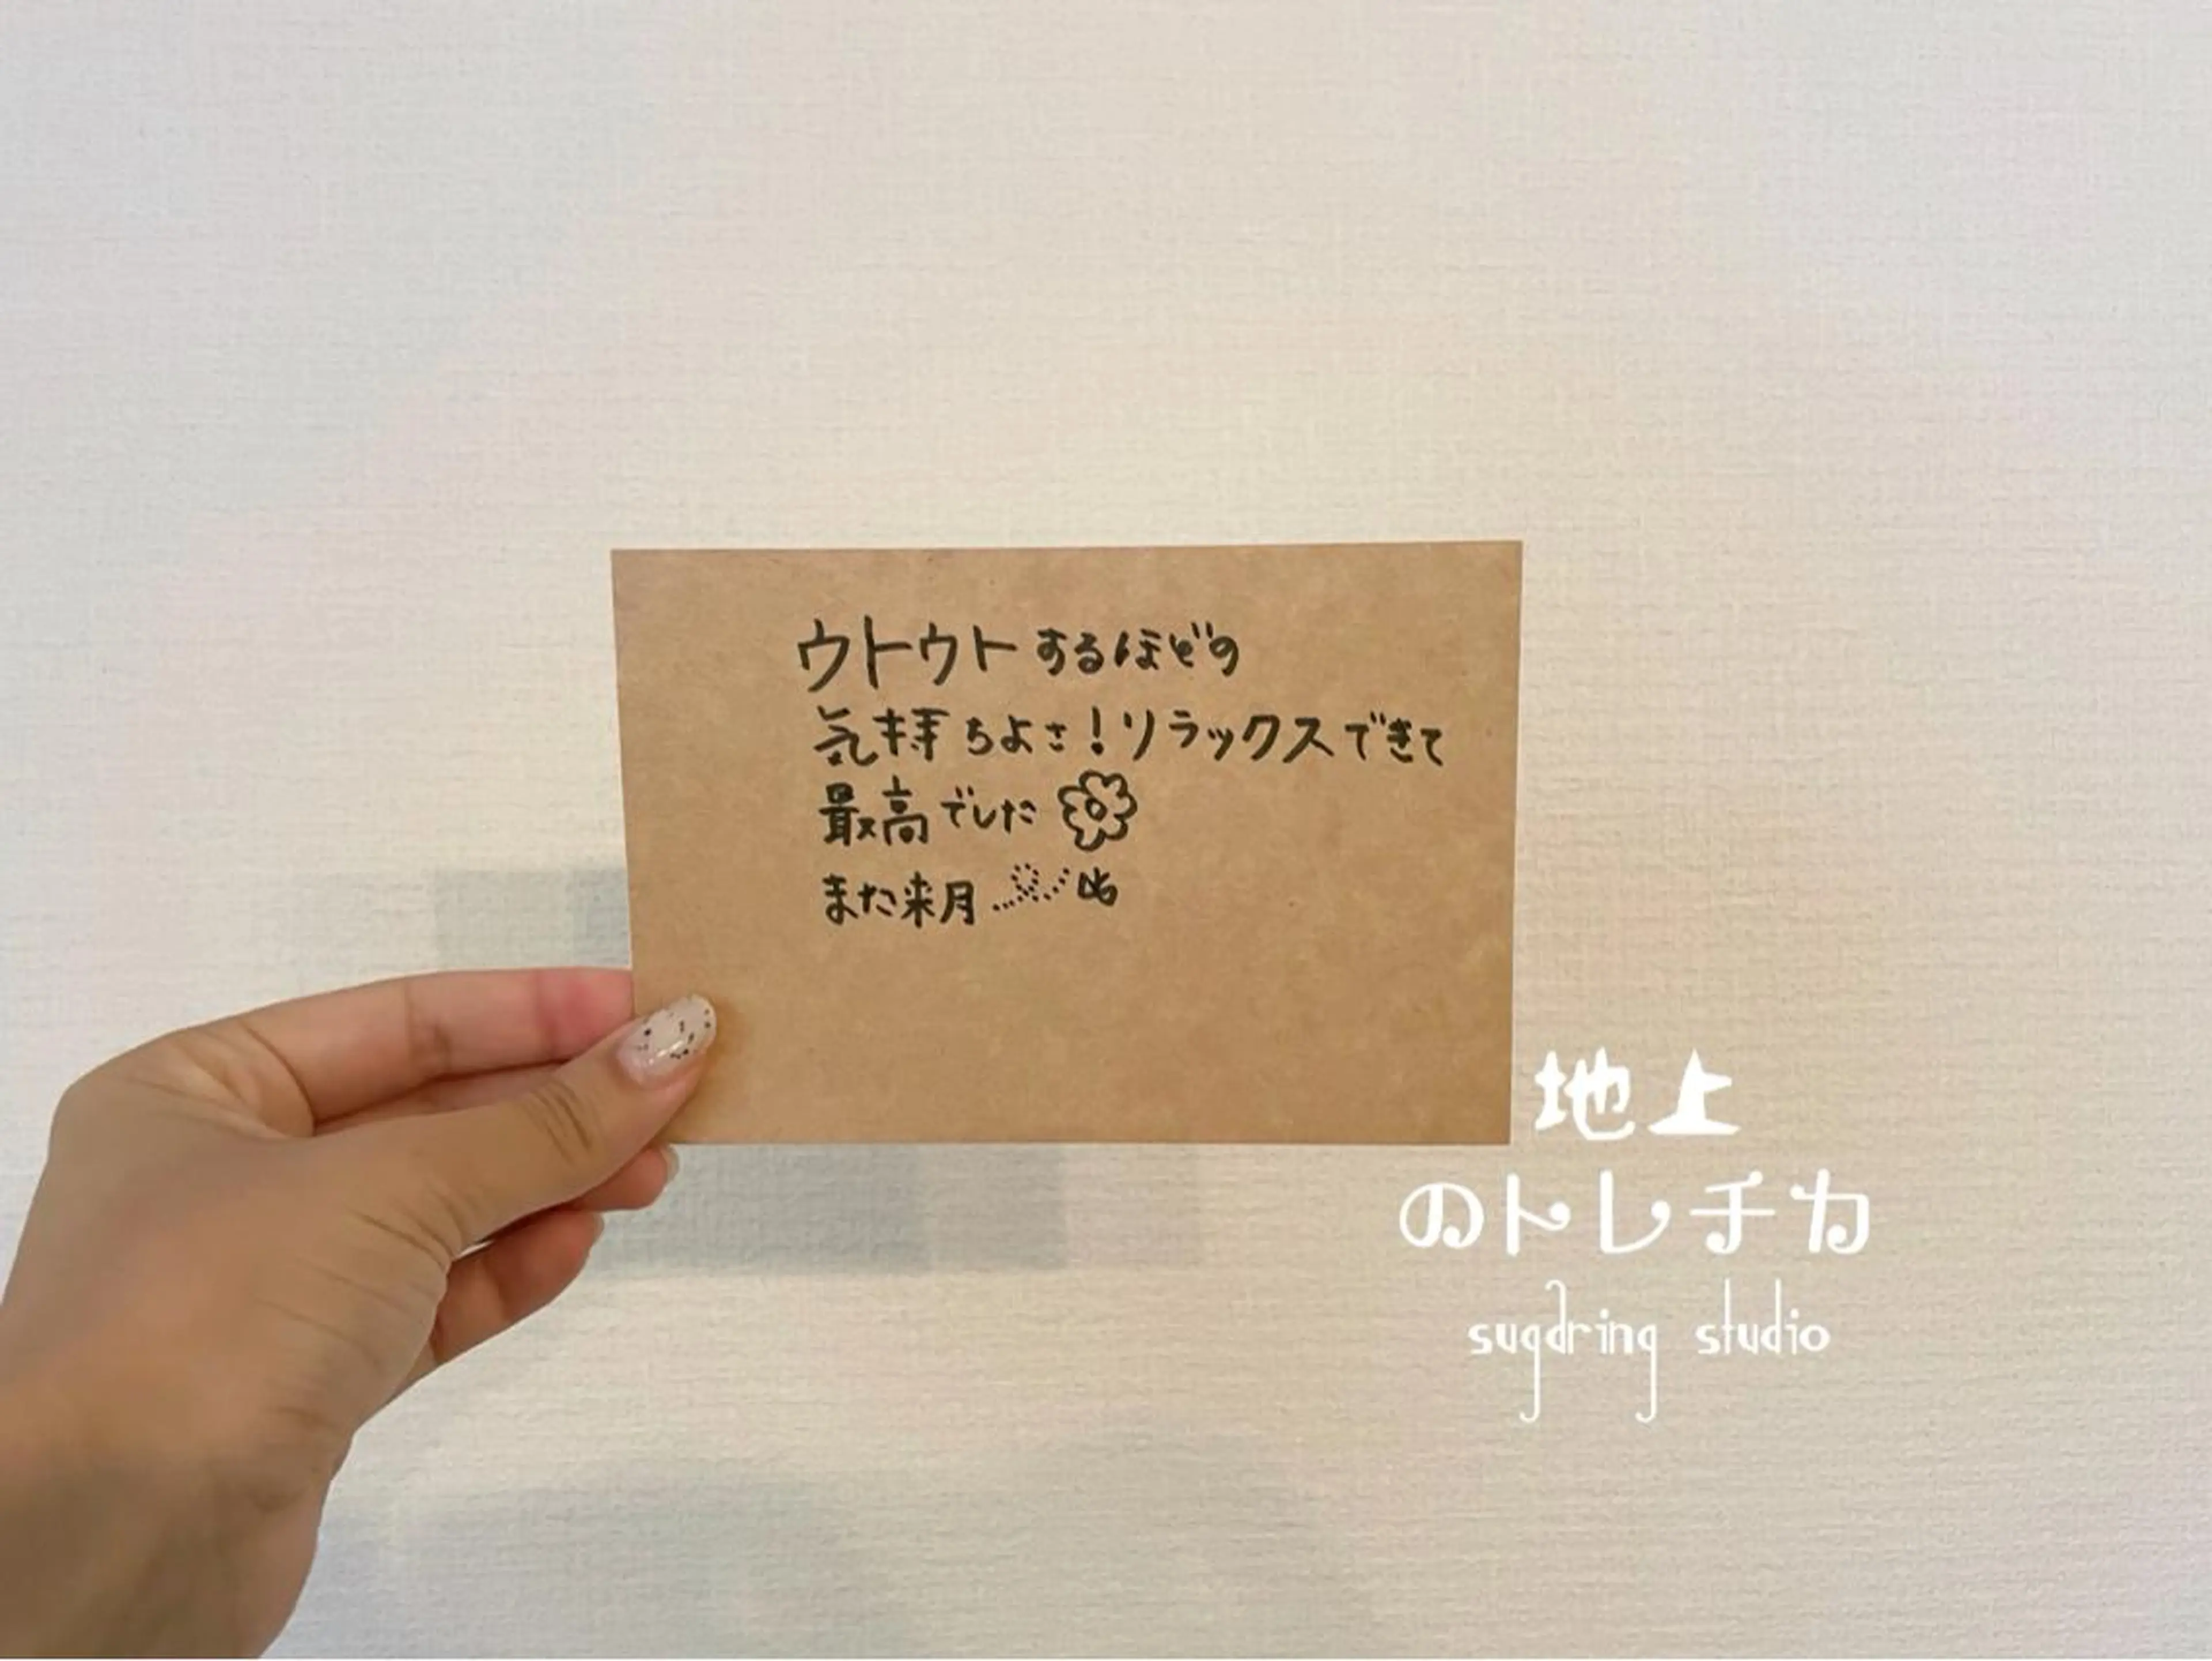 ウトウトするほどの
気持ちよさ！リラックスできて
最高でした
また来月
地上
のトレチカ
sugaring studio